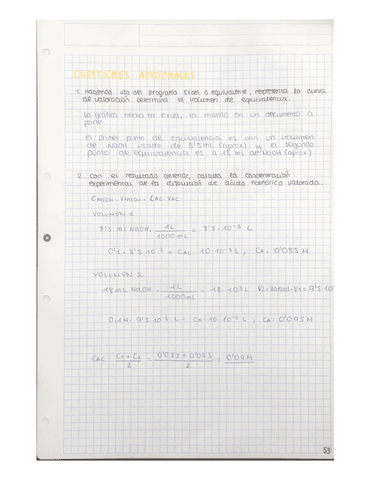 CUESTIONES ADICIONALES
1. Haciendo uso del programa Excel o equivalente, representa la curva
de valoración determina el volumen de equivalencia.
La gráfica hecha en Excel, la mando en un documento a
parte.
El primer punto de equivalencia es con un volumen
de NaOH usado de 8'5 mL (aprox) y el segundo
punto de equivalencia es a 18 mL de NaOH (aprox)
2. Con el resultado anterior, calcula la concentración
experimental de la disolución de ácido fosfórico valorada.
CNaOH · VNaOH = CAC · VAC
VOLUMEN 1
8'5 mL NaOH · 1L / 1000mL = 8'5 · 10⁻³ L
0'1 · 8'5 · 10⁻³ = CAC · 10 · 10⁻³ L ; CA = 0'085 M
VOLUMEN 2
18 mL NaOH · 1L / 1000mL = 18 · 10⁻³ L V2 = - V1 = 9'5 · 10
0,1M · 9'5 · 10⁻³ L = CA · 10 · 10⁻³ L ; CA = 0'095 M
CAC = C1 + C2 / 2 = 0'085 + 0'095 / 2 = 0'09 M
53